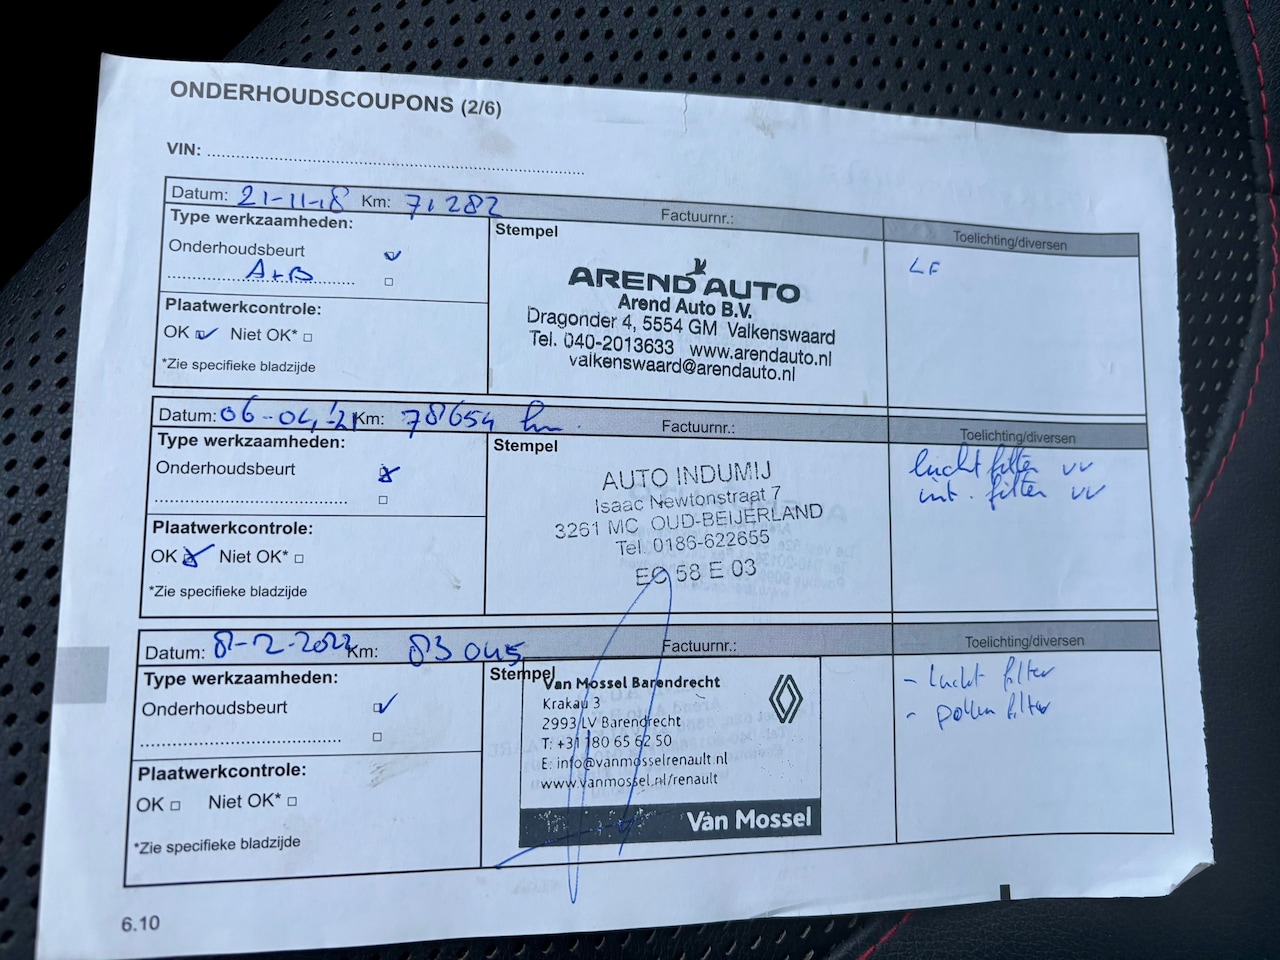 ONDERHOUDSCOUPONS (2/6)
VIN:
Datum: 21-11-18 Km: 71282 Factuurnr.:
Type werkzaamheden:
Onderhoudsbeurt
A+B
Plaatwerkcontrole:
OK Niet OK*
*Zie specifieke bladzijde
Stempel
AREND AUTO
Arend Auto B.V.
Dragonder 4, 5554 GM Valkenswaard
Tel. 040-2013633 www.arendauto.nl
valkenswaard@arendauto.nl
Toelichting/diversen
LF
Datum: 06-04-'21 Km: 78654 km. Factuurnr.:
Type werkzaamheden:
Onderhoudsbeurt
Plaatwerkcontrole:
OK Niet OK*
*Zie specifieke bladzijde
Stempel
AUTO INDUMIJ
Isaac Newtonstraat 7
3261 MC OUD-BEIJERLAND
Tel. 0186-622655
EC 58 E 03
Toelichting/diversen
lucht filter vv
int. filter vv
Datum: 8-12-2022 Km: 83045 Factuurnr.:
Type werkzaamheden:
Onderhoudsbeurt
Plaatwerkcontrole:
OK Niet OK*
*Zie specifieke bladzijde
Stempel
Van Mossel Barendrecht
Krakau 3
2993 LV Barendrecht
T: +31 180 65 62 50
E: info@vanmosselrenault.nl
www.vanmossel.nl/renault
Van Mossel
Toelichting/diversen
- lucht filter
- pollen filter
6.10